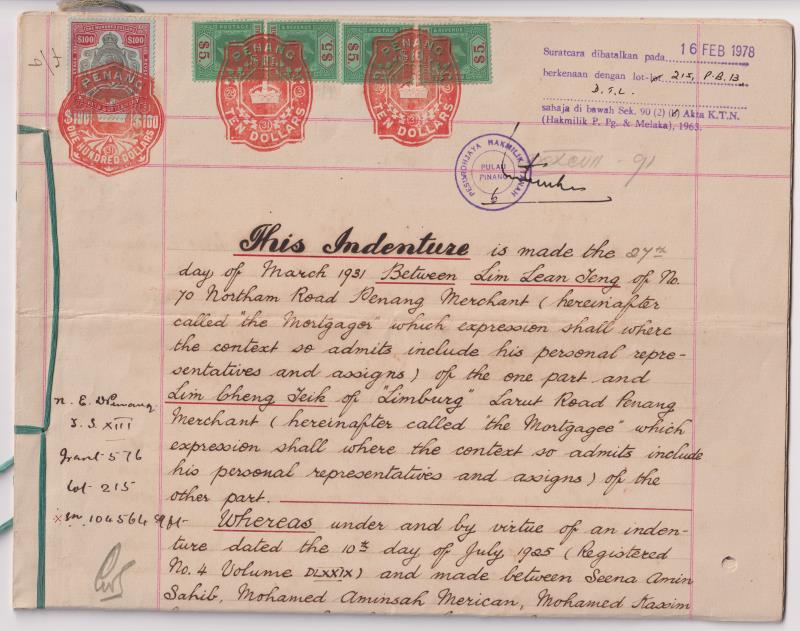 $100 $100
PENANG
31
$100 $100
ONE HUNDRED DOLLARS
POSTAGE & REVENUE
$5 $5 $5 $5
PENANG
31
TEN DOLLARS
PENANG
31
TEN DOLLARS
Suratcara dibatalkan pada 16 FEB 1978
berkenaan dengan lot 215, P.B. 13
D.T.L.
sahaja di bawah Sek. 90 (2) Akta K.T.N.
(Hakmilik P. Pg. & Melaka), 1963.
HAKMILIK TANAH
PULAU
PINANG
This Indenture is made the 27th
day of March 1931 Between Lim Lean Teng of No.
70 Northam Road Penang Merchant (hereinafter
called "the Mortgagor" which expression shall where
the context so admits include his personal repre-
sentatives and assigns) of the one part and
Lim Cheng Teik of "Limburg" Larut Road Penang
Merchant (hereinafter called "the Mortgagee" which
expression shall where the context so admits include
his personal representatives and assigns) of the
other part.
N. E. D Penang
T. S. XIII
Grant 576
Lot 215
104564 sq ft
Whereas under and by virtue of an inden-
ture dated the 10th day of July 1925 (Registered
No. 4 Volume DLXXIX) and made between Seena Amin
Sahib, Mohamed Aminsah Merican, Mohamed Kassim